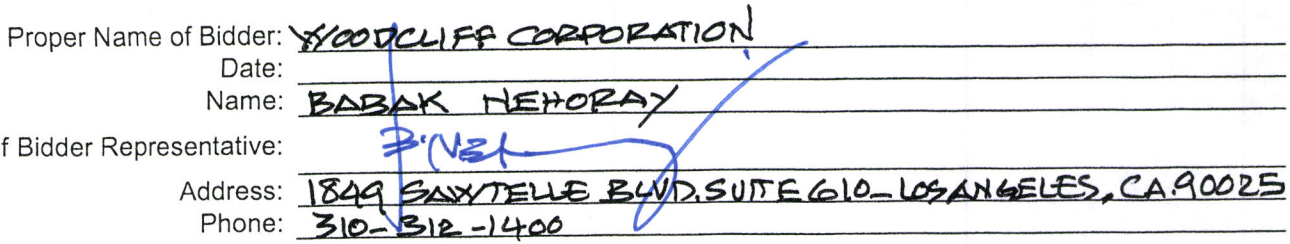 Proper Name of Bidder: WOODCLIFF CORPORATION
Date:
Name: BABAK NEHORAY
f Bidder Representative:
Address: 1849 SAWTELLE BLVD. SUITE 610- LOS ANGELES, CA. 90025
Phone: 310-312-1400